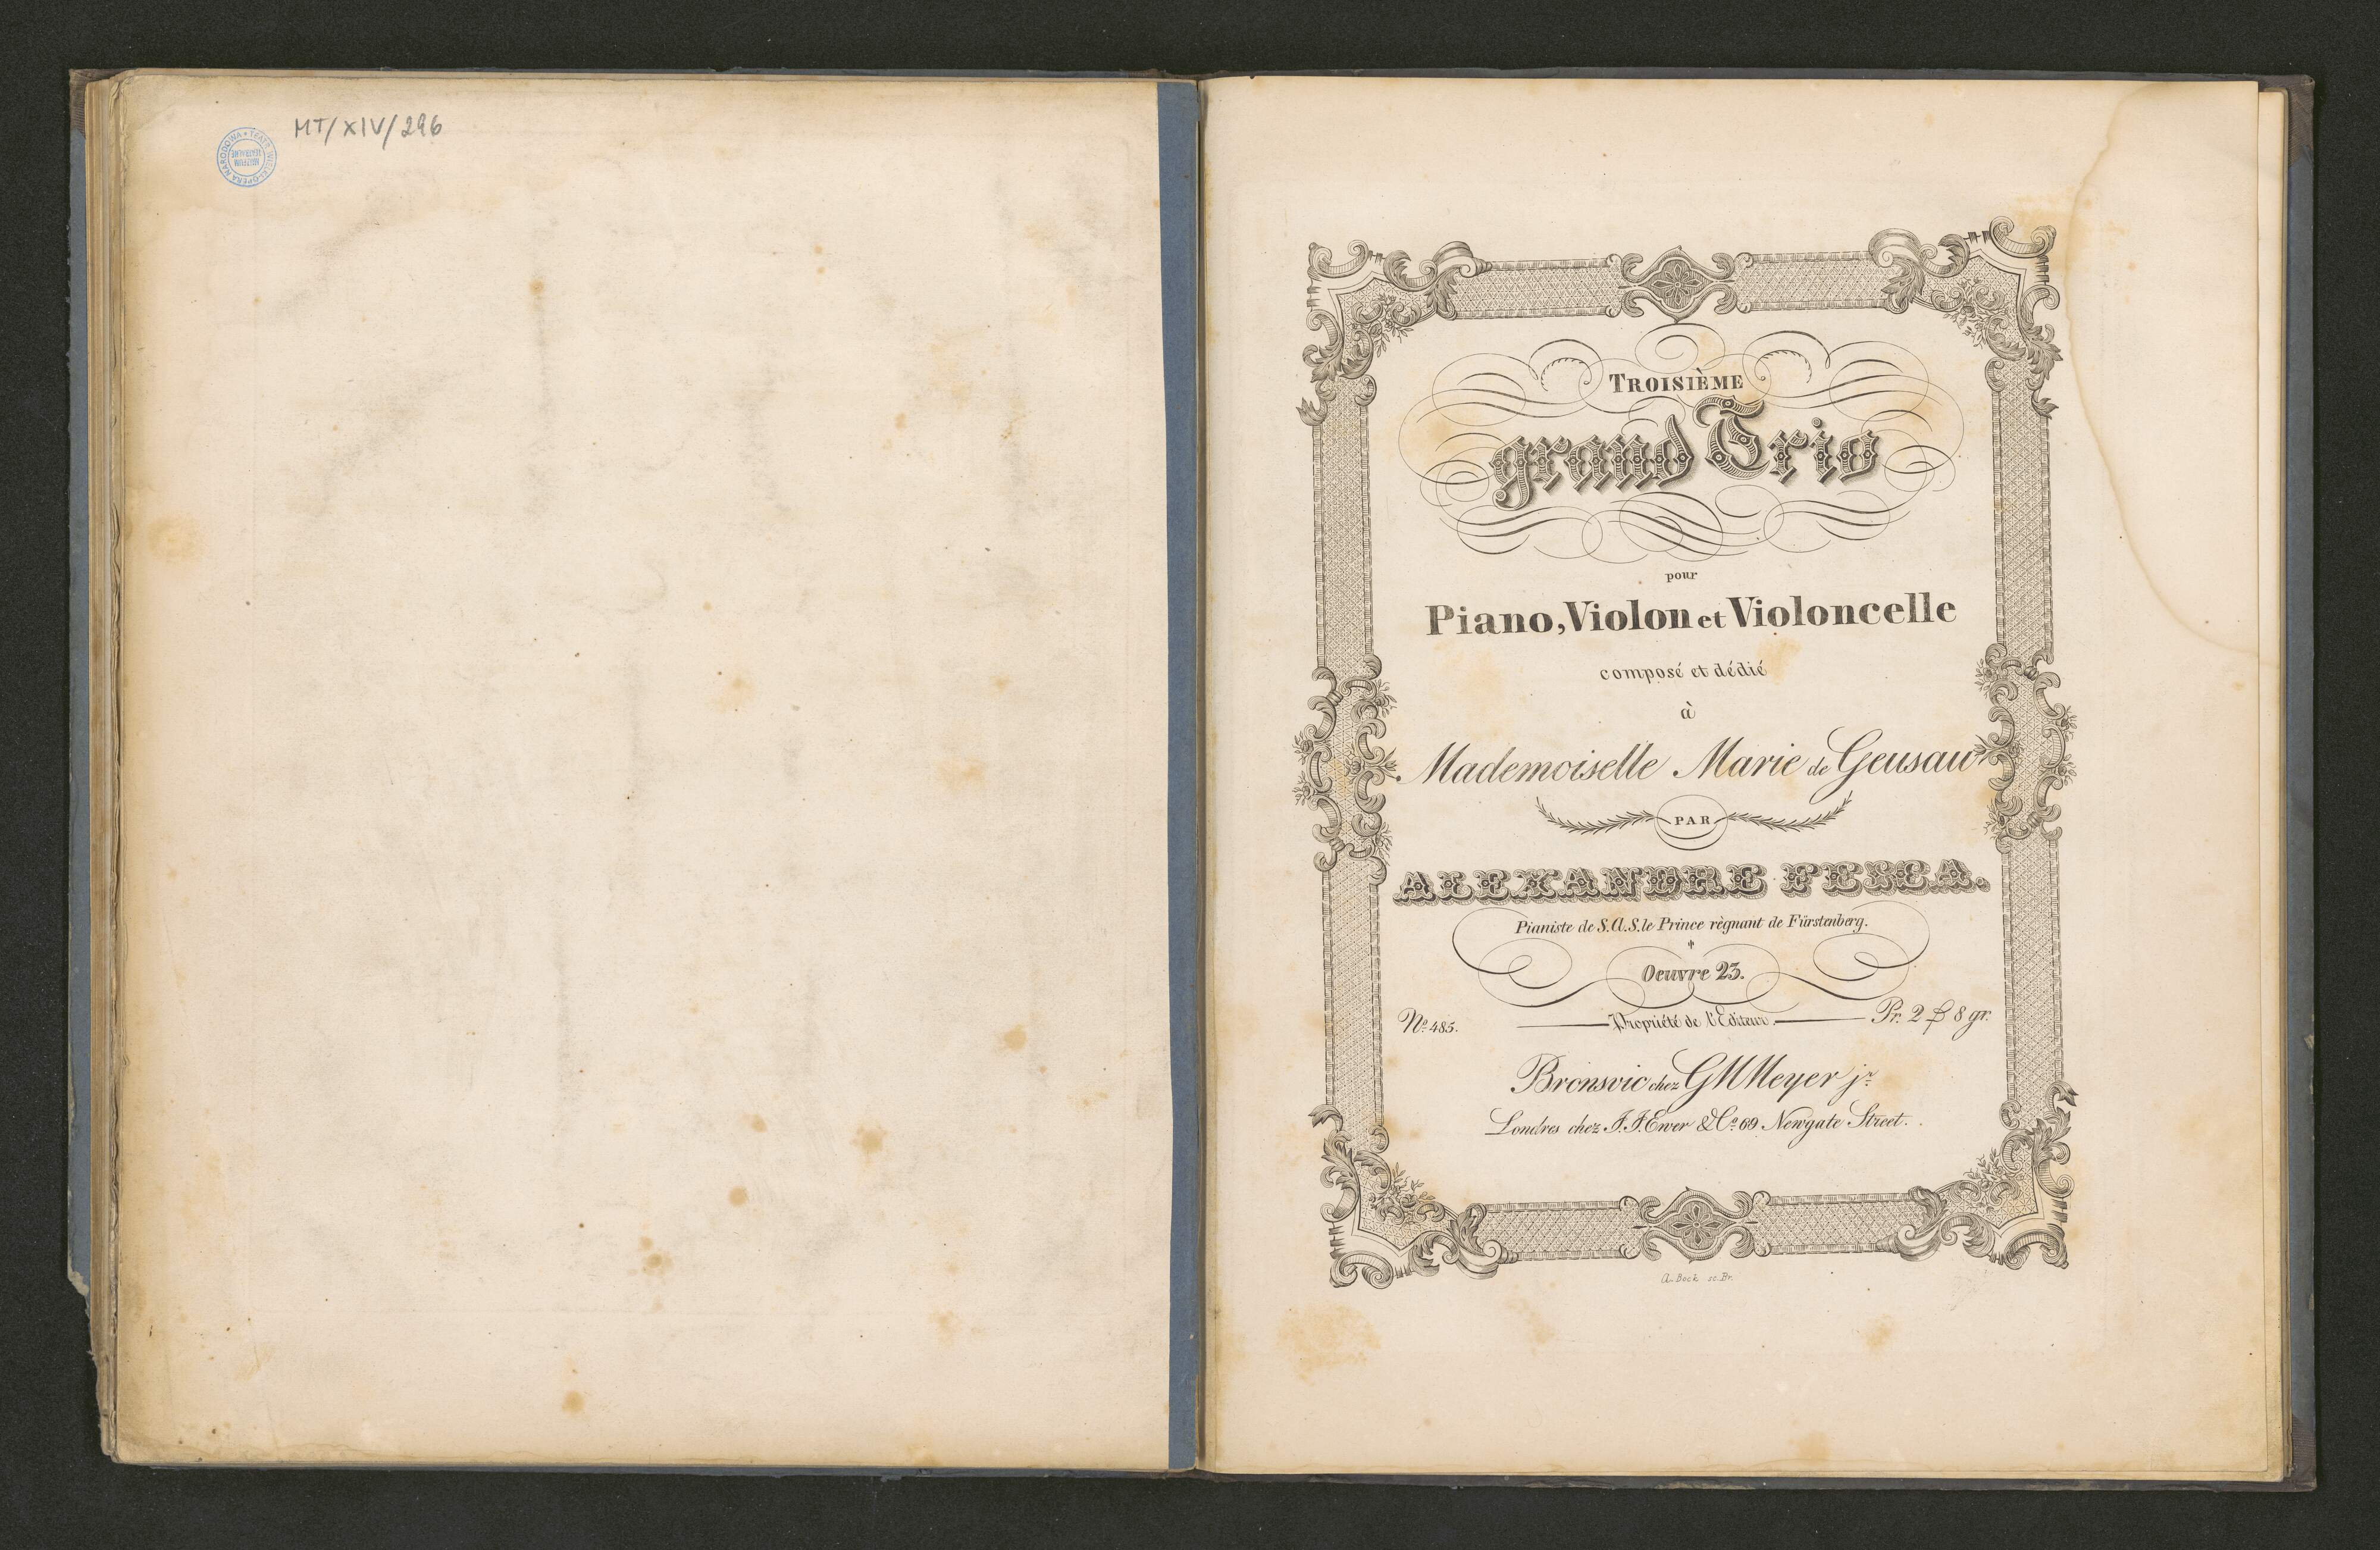 MT/XIV/296
TEATR WIELKI-OPERA NARODOWA
MUZEUM
TEATRALNE
TROISIÈME
grand Trio
pour
Piano, Violon et Violoncelle
composé et dédié
à
Mademoiselle Marie de Geusau
PAR
ALEXANDRE FESCA.
Pianiste de S.A.S. le Prince règnant de Fürstenberg.
Oeuvre 23.
No. 485.
Propriété de l'Editeur.
Pr. 2 ₰ 8 gr.
Bronsvic chez G M Meyer jr.
Londres chez J. J. Ewer & Co. 69 Newgate Street.
A. Bock sc. Br.